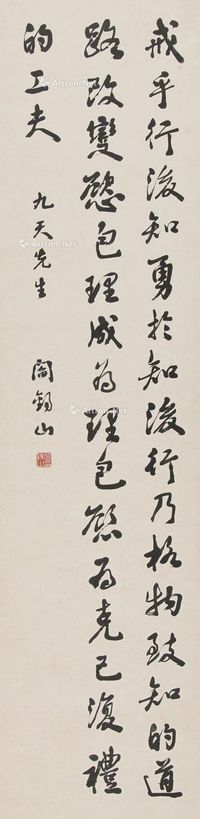 戒乎行後知勇於知後行乃格物致知的道
路改變慾包理成為理包慾為克己復禮
的工夫
九天先生
閻錫山